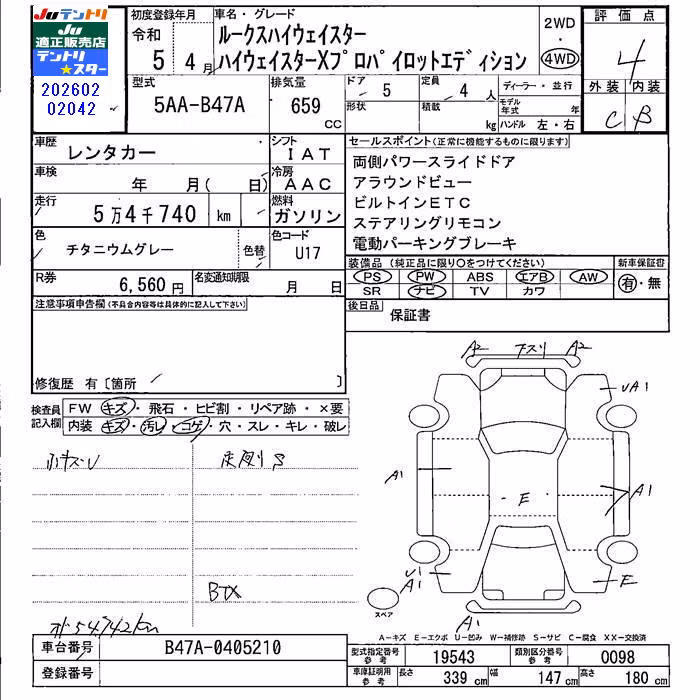 Juテントリ
Ju
適正販売店
テントリ
★スター
202602
02042
初度登録年月
令和
5 4月
車名・グレード
ルークスハイウェイスター
ハイウェイスターXプロパイロットエディション
2WD
・
4WD
評価点
4
外装 内装
C B
型式
5AA-B47A
排気量
659
CC
ドア
5
定員
4 人
形状
積載
kg
ディーラー・並行
モデル年式 年
ハンドル 左・右
車歴
レンタカー
シフト
IAT
車検
年 月( 日)
冷房
AAC
走行
5万4千740 km
燃料
ガソリン
色
チタニウムグレー
色替
色コード
U17
R券
6,560円
名変通知期限
月 日
セールスポイント(正常に機能するものに限ります)
両側パワースライドドア
アラウンドビュー
ビルトインETC
ステアリングリモコン
電動パーキングブレーキ
装備品(純正品に限り○をつけてください)
PS PW ABS エアB AW
SR ナビ TV カワ
新車保証書
有・無
後日品
保証書
注意事項申告欄(不具合内容等は具体的に記入して下さい)
修復歴 有〔箇所 〕
検査員
記入欄
FW キズ・飛石・ヒビ割・リペア跡・×要
内装 キズ・汚レ・コゲ・穴・スレ・キレ・破レ
小キズU
BTX
オド54,742km
A2 下スリ A2
UA1
A1
A1
E
U1
A1
E
A1
スペア
A−キズ E−エクボ U−凹み W−補修跡 S−サビ C−腐食 XX−交換済
車台番号
B47A-0405210
登録番号
型式指定番号
参考
19543
類別区分番号
参考
0098
車庫証明用
参考
長さ 339 cm 幅 147 cm 高さ 180 cm